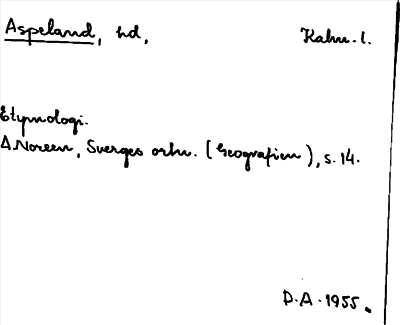 Aspeland, hd, Kalm. l.
Etymologi.
A Noreen, Sverges ortn. (Geografien), s. 14.
D.A. 1955.